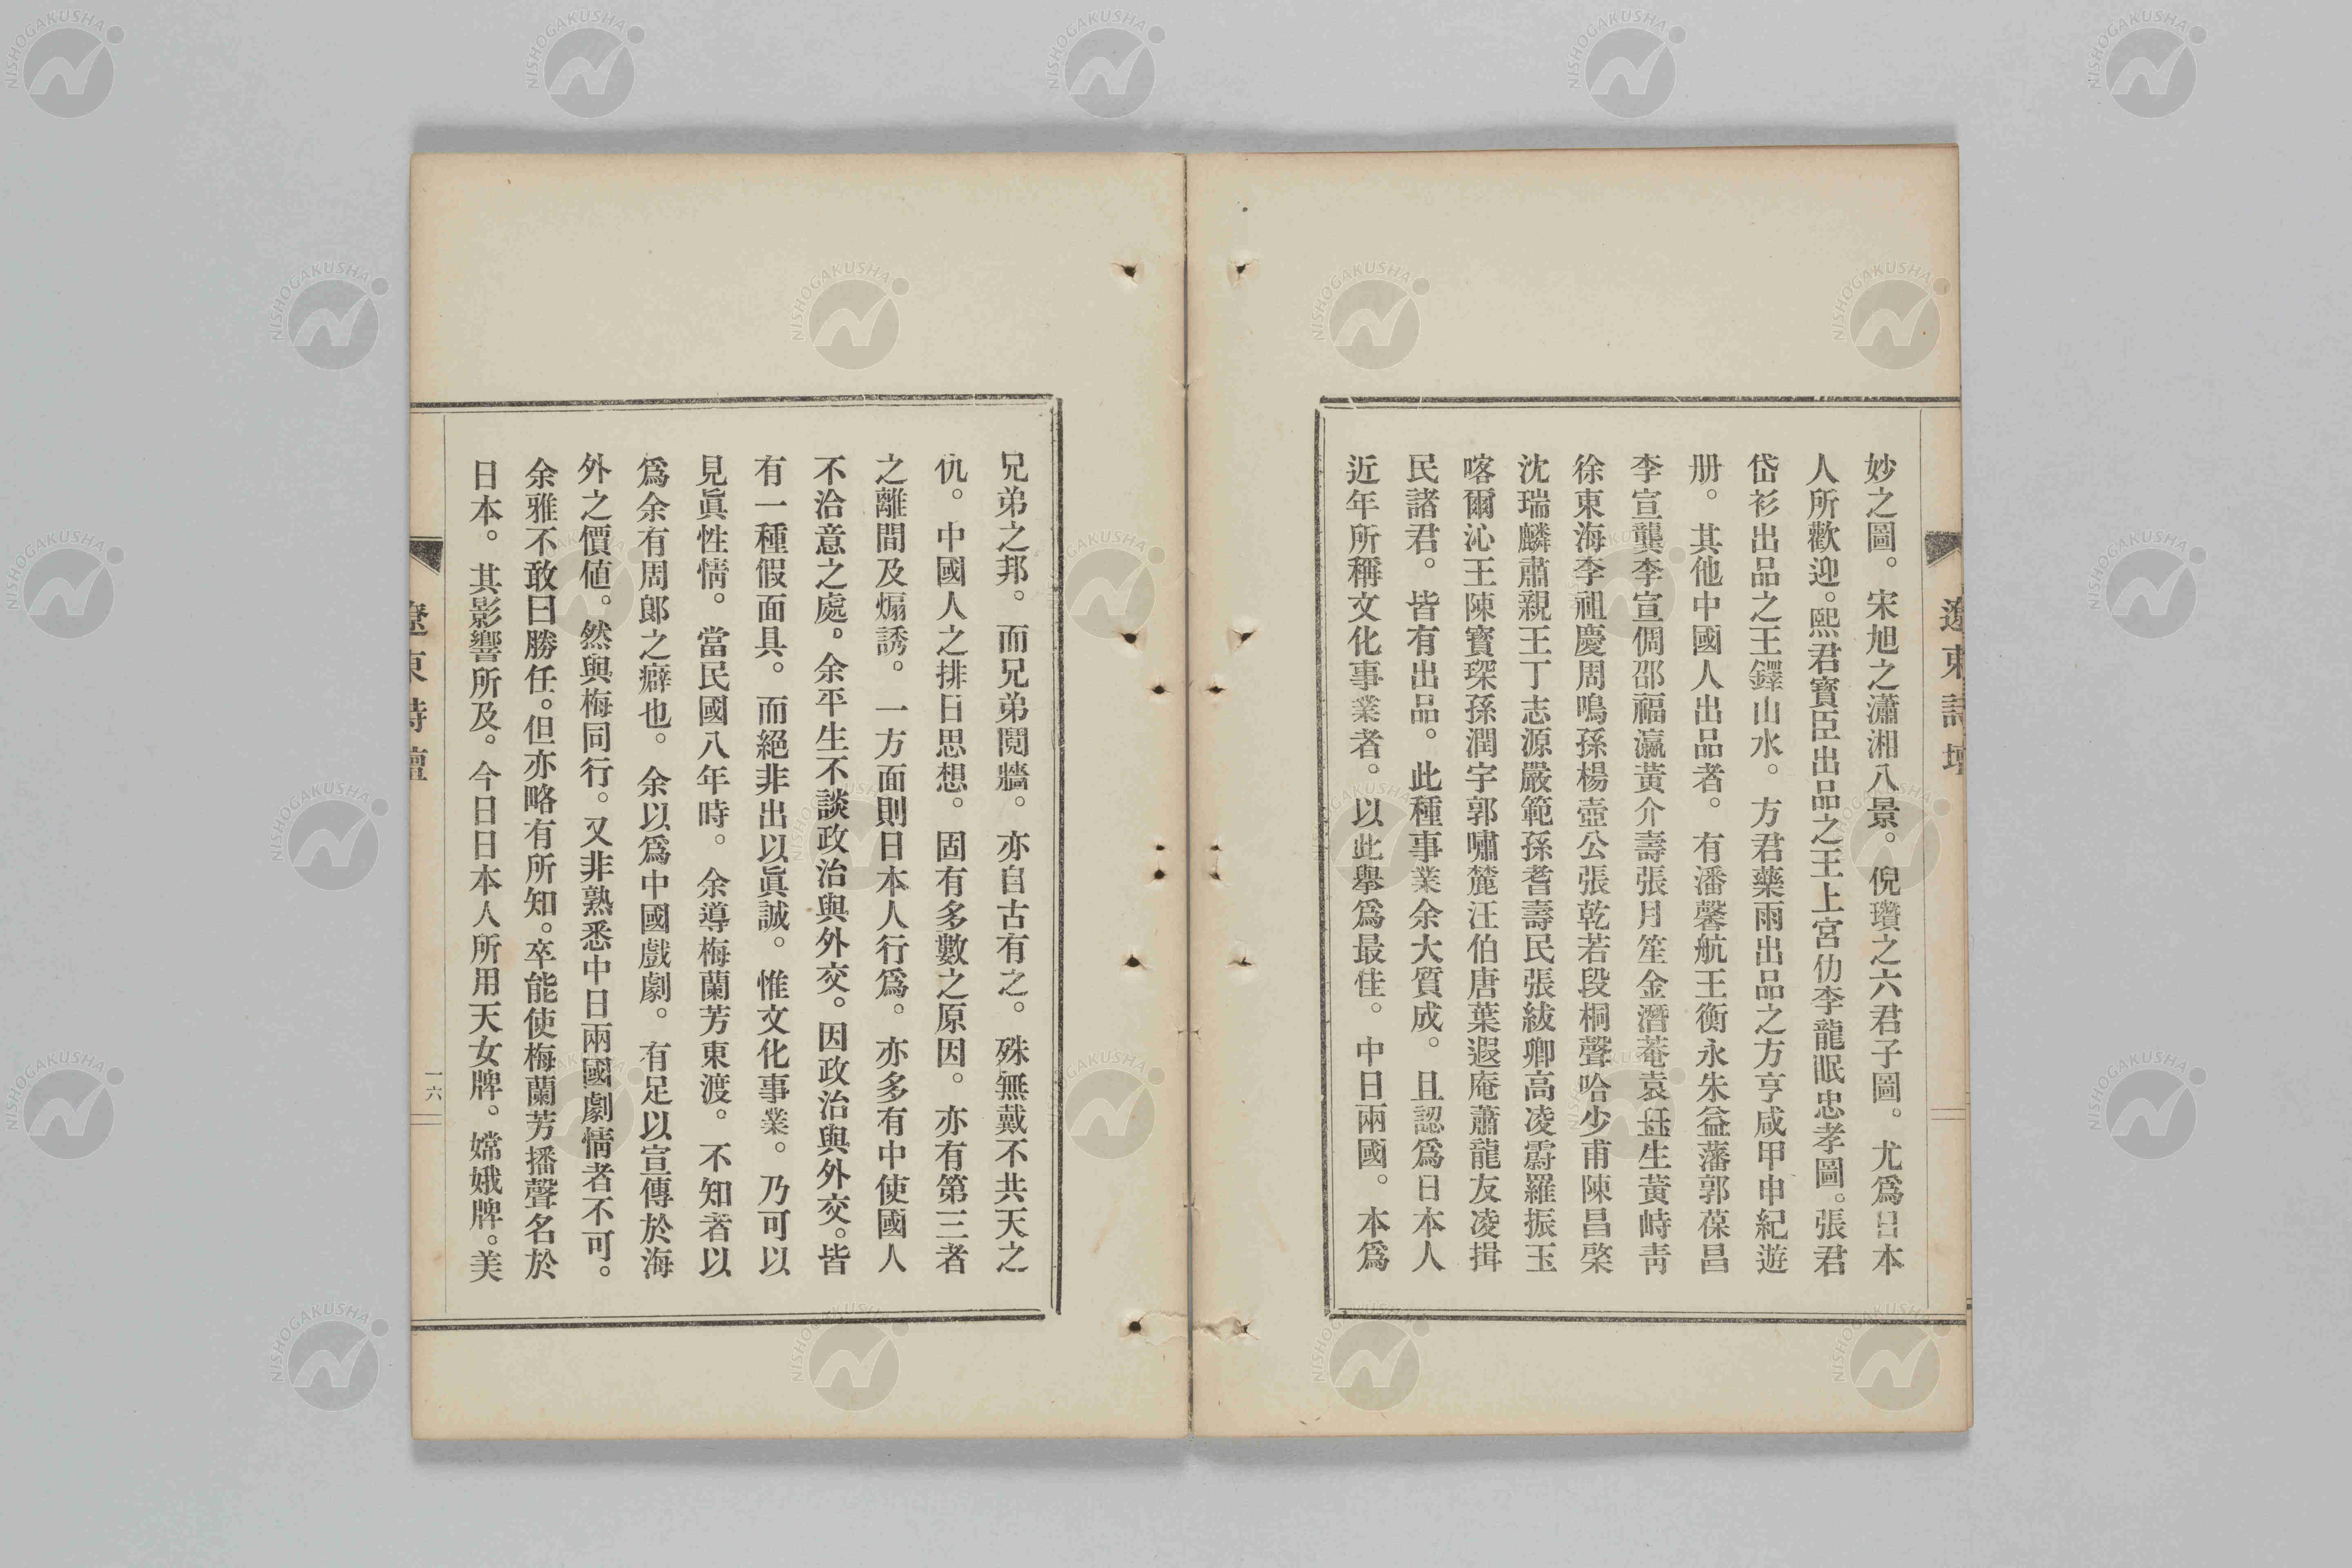 遼東詩壇
妙之圖。宋旭之瀟湘八景。倪瓚之六君子圖。尤爲日本
人所歡迎。熙君寳臣出品之王上宮仂李龍眠忠孝圖。張君
岱衫出品之王鐸山水。方君藥雨出品之方亨咸甲申紀遊
册。其他中國人出品者。有潘馨航王衡永朱益藩郭葆昌
李宣龔李宣倜邵福瀛黃介壽張月笙金潛菴袁珏生黃峙靑
徐東海李祖慶周鳴孫楊壺公張乾若段桐聲哈少甫陳昌棨
沈瑞麟肅親王丁志源嚴範孫耆壽民張紱卿高凌霨羅振玉
喀爾沁王陳寳琛孫潤宇郭嘯麓汪伯唐葉遐庵蕭龍友凌揖
民諸君。皆有出品。此種事業余大質成。且認爲日本人
近年所稱文化事業者。以此擧爲最佳。中日兩國。本爲
兄弟之邦。而兄弟鬩牆。亦自古有之。殊無戴不共天之
仇。中國人之排日思想。固有多數之原因。亦有第三者
之離間及煽誘。一方面則日本人行爲。亦多有中使國人
不洽意之處。余平生不談政治與外交。因政治與外交。皆
有一種假面具。而絕非出以眞誠。惟文化事業。乃可以
見眞性情。當民國八年時。余導梅蘭芳東渡。不知者以
爲余有周郎之癖也。余以爲中國戲劇。有足以宣傳於海
外之價値。然與梅同行。又非熟悉中日兩國劇情者不可。
余雅不敢曰勝任。但亦略有所知。卒能使梅蘭芳播聲名於
日本。其影響所及。今日日本人所用天女牌。嫦娥牌。美
遼東詩壇
一六
NISHOGAKUSHA